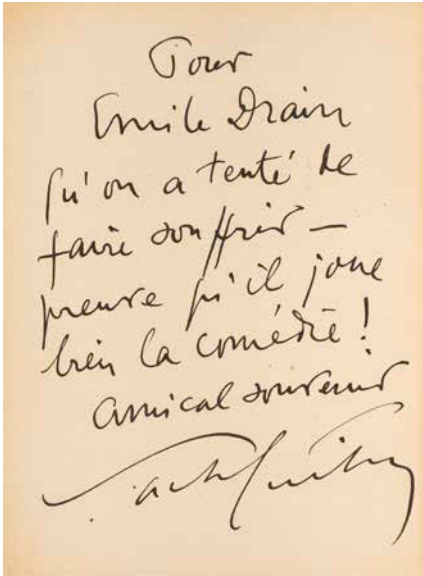 Pour
Emile Drain
qu'on a tenté de
faire souffrir –
preuve qu'il joue
bien la comédie !
amical souvenir
Sacha Guitry